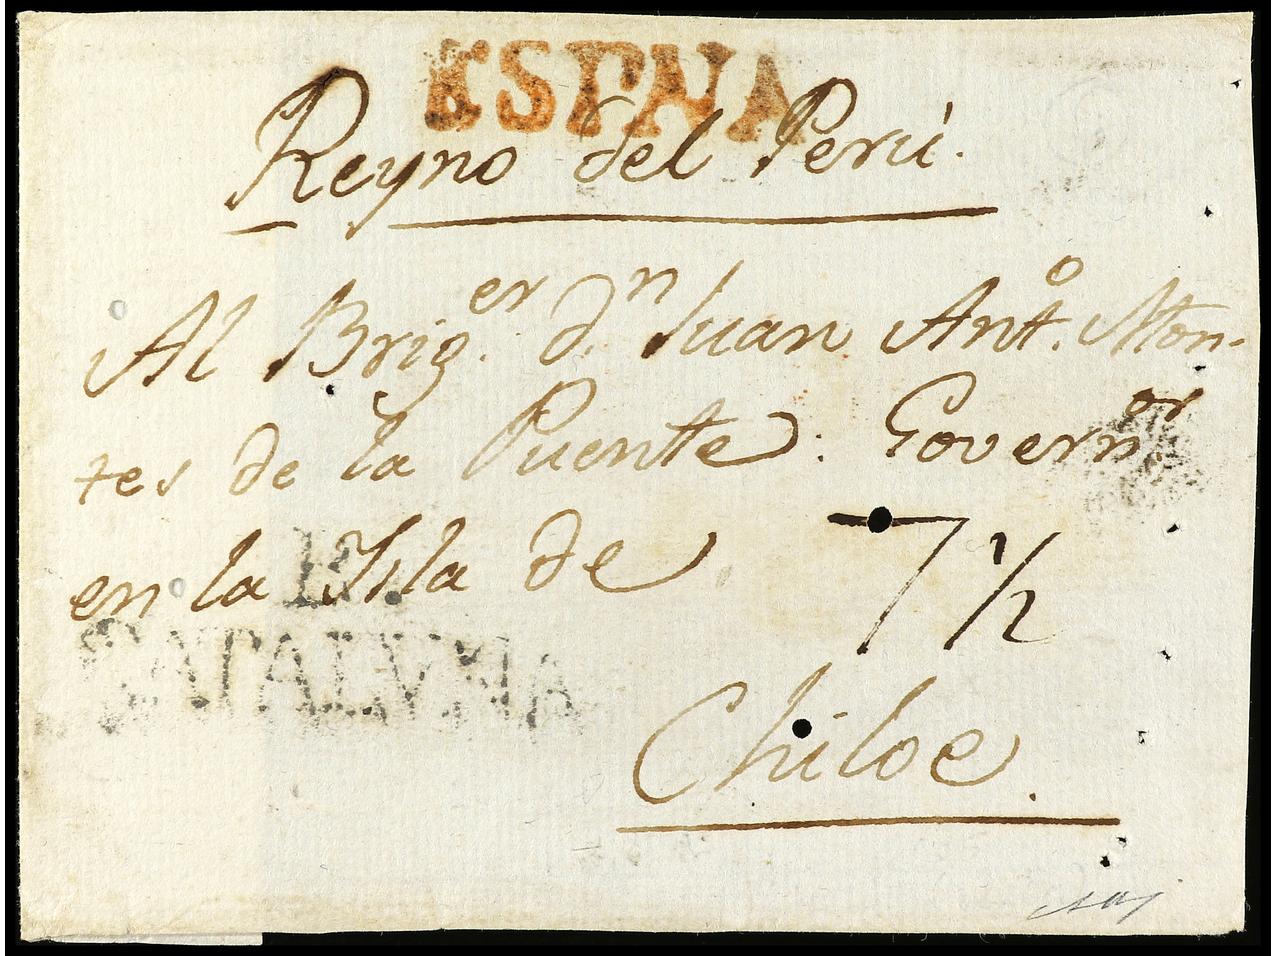 ESPNA
Reyno del Perú.
Al Brig.er d.n Juan Ant.o Mon-
tes de la Puente: Govern.or
en la Isla de
7 1/2
CATALVÑA
Chiloe.